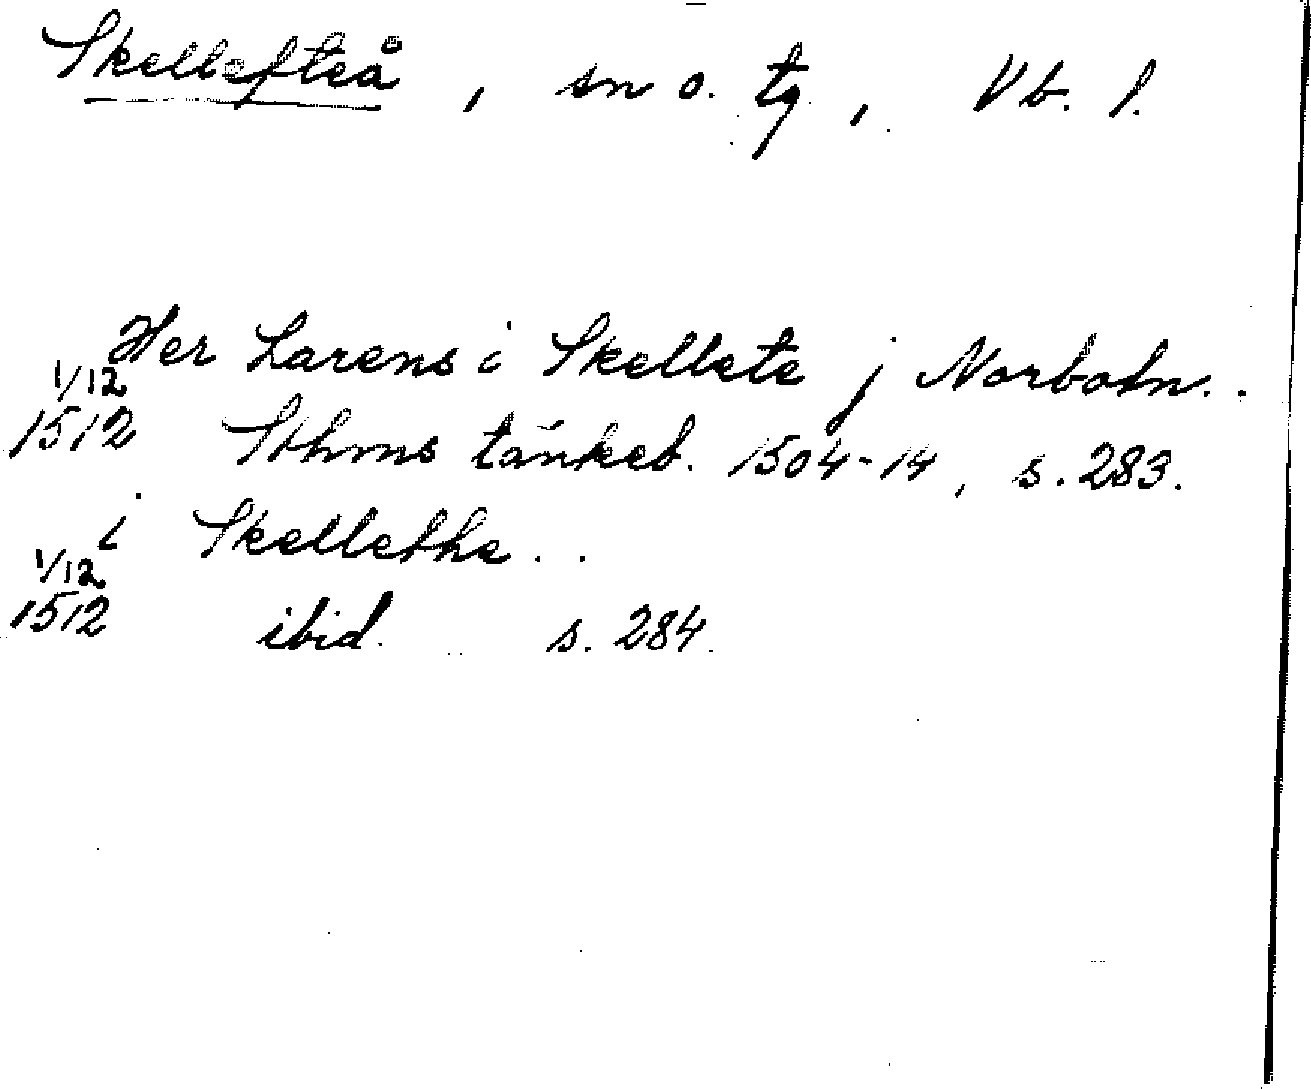 Skellefteå, sn o. tg, Vb. l.
Her Larens i Skellete j Norbotn..
1/12
1512 Sthms tänkeb. 1504-14, s. 283.
i Skellethe..
1/12
1512 ibid. s. 284.